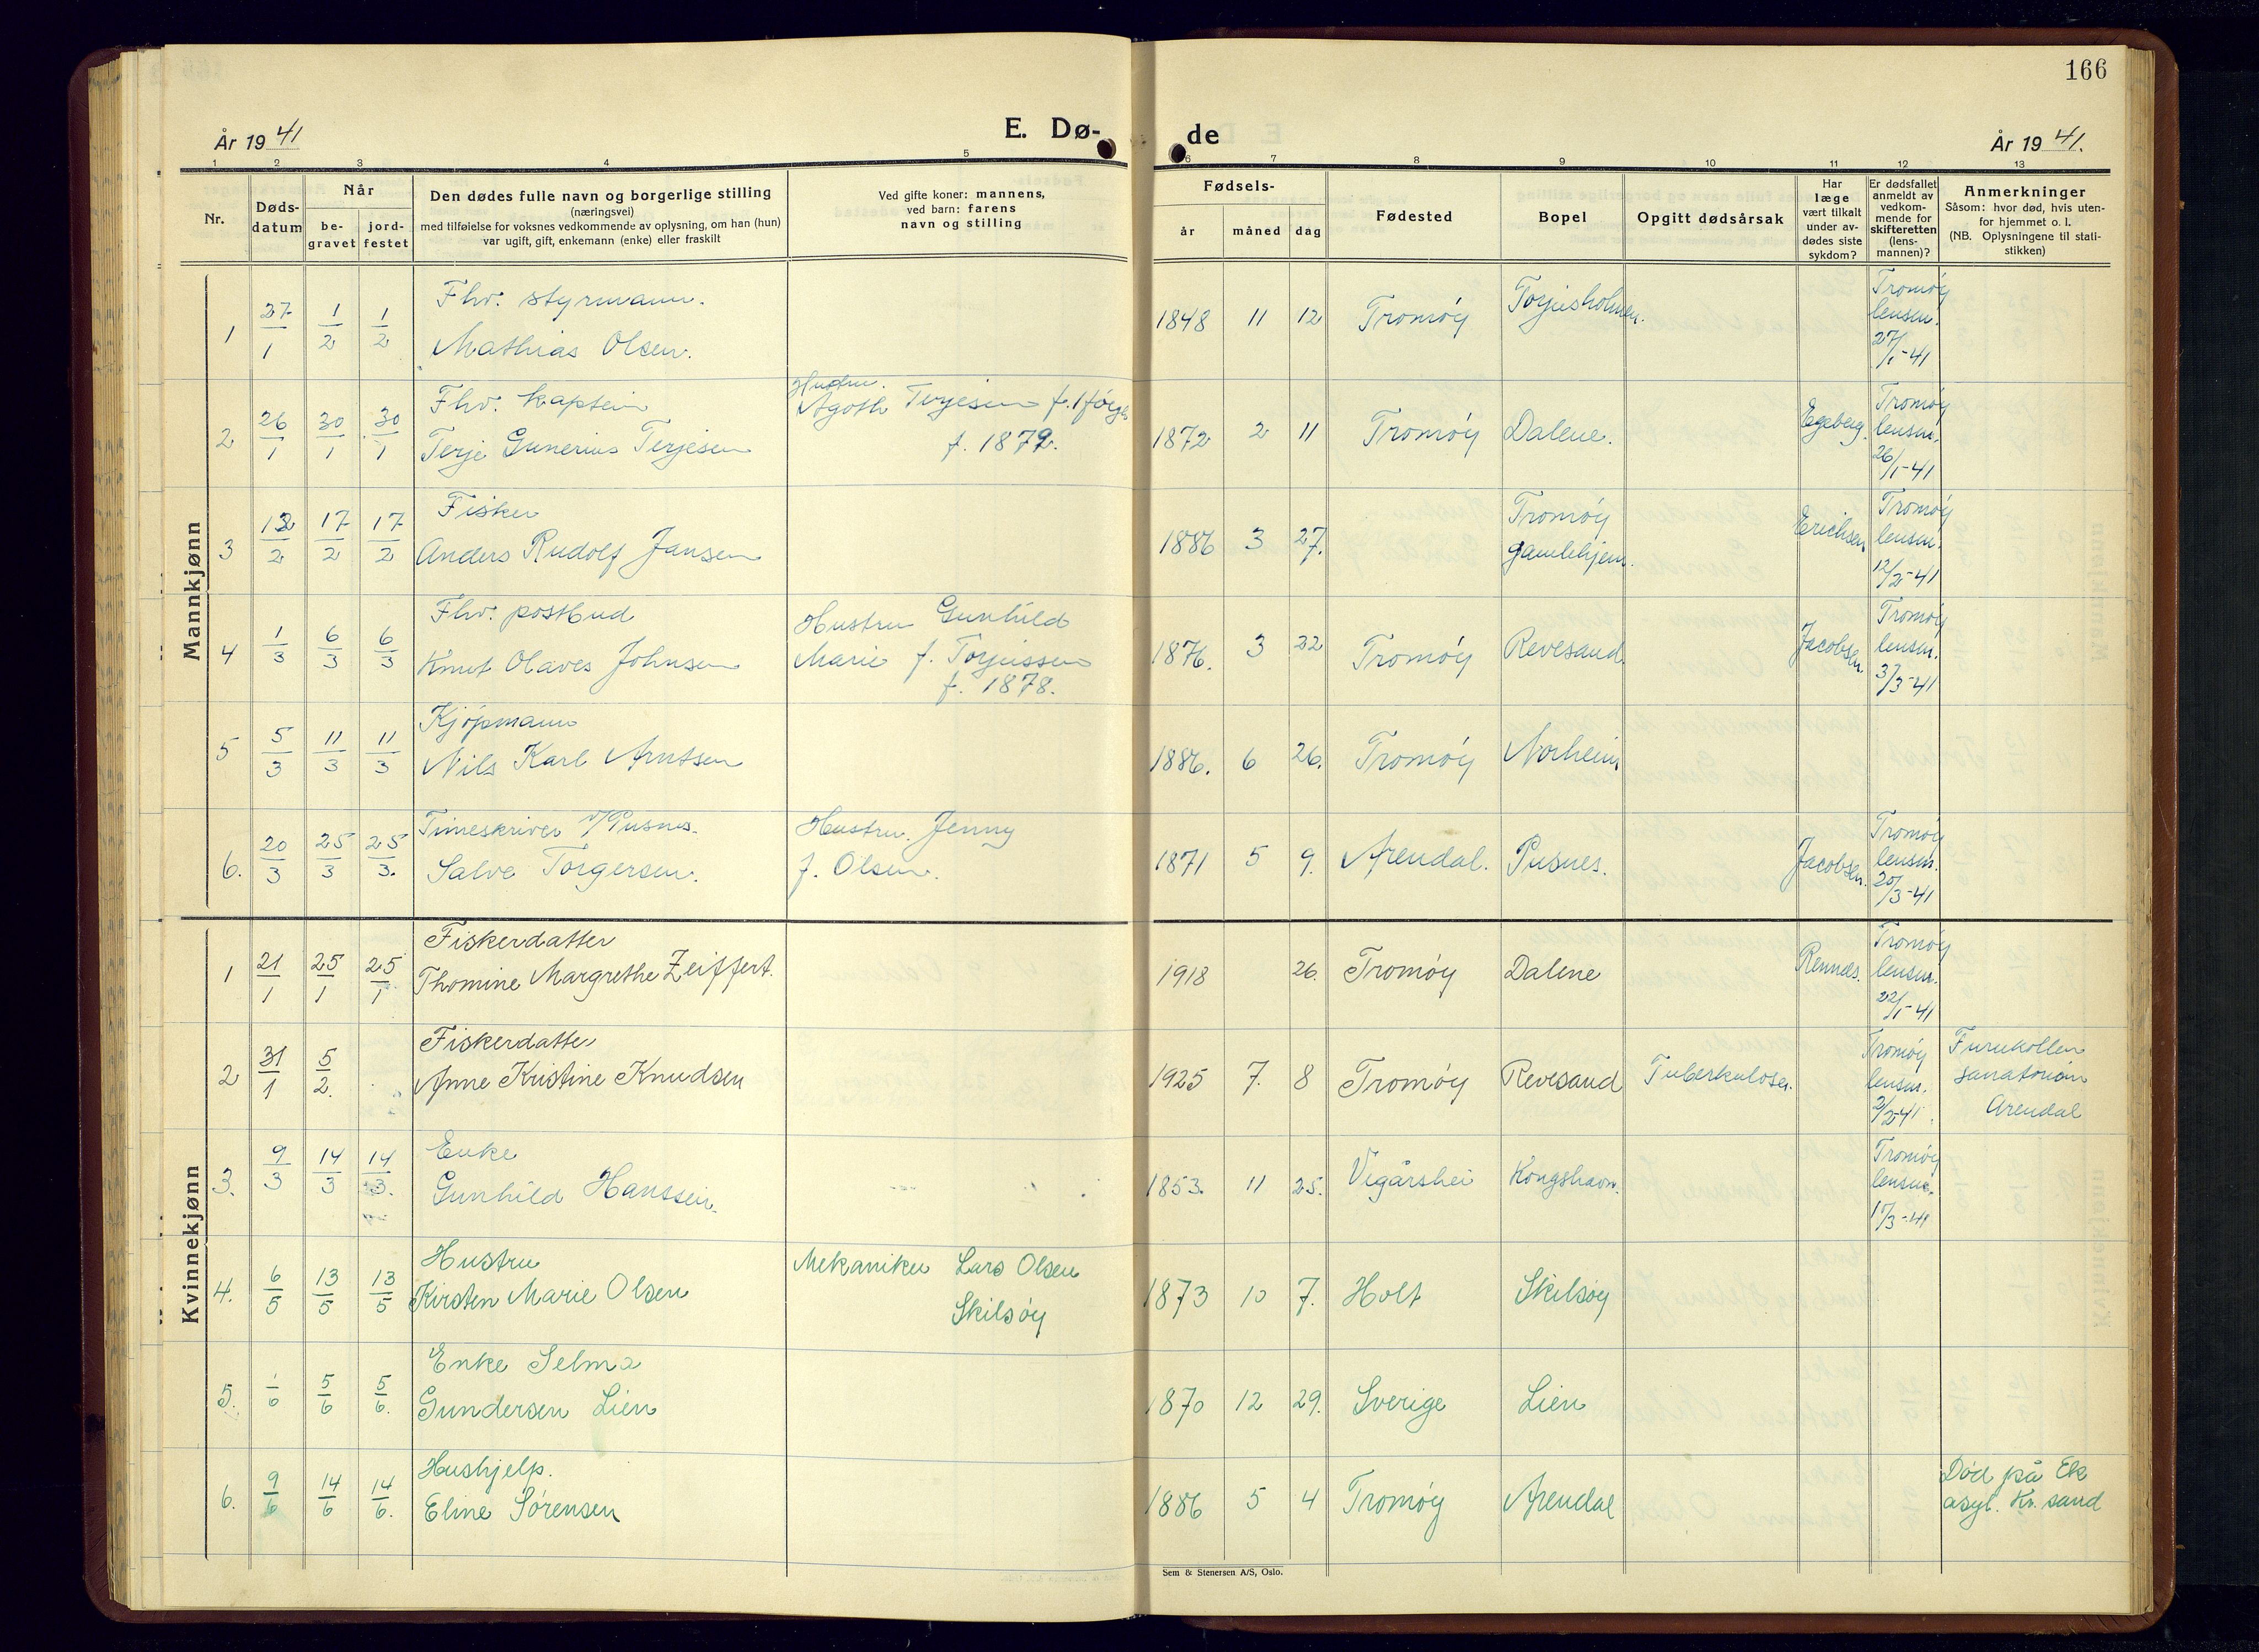 166
År 1941
E. Dø-
de
År 1941.
1 2 3 4 5 6 7 8 9 10 11 12 13
Nr.
Døds-
datum
Når
be-
gravet
jord-
festet
Den dødes fulle navn og borgerlige stilling
(næringsvei)
med tilføielse for voksnes vedkommende av oplysning, om han (hun)
var ugift, gift, enkemann (enke) eller fraskilt
Ved gifte koner: mannens,
ved barn: farens
navn og stilling
Fødsels-
år måned dag
Fødested
Bopel
Opgitt dødsårsak
Har
læge
vært tilkalt
under av-
dødes siste
sykdom?
Er dødsfallet
anmeldt av
vedkom-
mende for
skifteretten
(lens-
mannen)?
Anmerkninger
Såsom: hvor død, hvis uten-
for hjemmet o. l.
(NB. Oplysningene til stati-
stikken)
Mannkjønn
1 27/1 1/2 1/2
Fhv. styrmann.
Mathias Olsen.
1848 11 12 Tromøy Torjusholmen.
Tromøy
lensm.
27/1-41
2 26/1 30/1 30/1
Fhv. kaptein
Terje Gunerius Terjesen
Hustru.
Agoth Terjesen f.
f. 1872.
1872 2 11 Tromøy Dalene. Egeberg.
Tromøy
lensm.
26/1-41
3 12/2 17/2 17/2
Fisker
Anders Rudolf Jansen
1886 3 27.
Tromøy
gamlehjem.
Erichsen
Tromøy
lensm.
12/2-41
4 1/3 6/3 6/3
Fhv. postbud
Knut Olaves Johnsen
Hustru Gunhild
Marie f. Torjussen
f. 1878.
1876. 3 22 Tromøy Revesand. Jacobsen.
Tromøy
lensm.
3/3-41
5 5/3 11/3 11/3
Kjøpmann
Nils Karl Arntsen
1886. 6 26. Tromøy Norheim
6. 20/3 25/3 25/3.
Timeskriver v/Pusnes.
Salve Torgersen.
Hustru. Jenny
f. Olsen.
1871 5 9. Arendal. Pusnes. Jacobsen.
Tromøy
lensm.
20/3-41
Kvinnekjønn
1 21/1 25/1 25/1
Fiskerdatter
Thomine Margrethe Zeiffert.
1918 26. Tromøy Dalene Rennes.
Tromøy
lensm.
22/1-41
2 31/1 5/2.
Fiskerdatter
Anne Kristine Knudsen
1925 7. 8 Tromøy Revesand Tuberkulose.
Tromøy
lensm.
2/2-41.
Furukollen
sanatorium
Arendal
3. 9/3 14/3 14/3.
Enke
Gunhild Hanssen.
1853. 11 25. Vigårshei Kongshavn.
Tromøy
lensm.
1-41
4. 6/5 13/5 13/5
Hustru
Kirsten Marie Olsen
Mekaniker Lars Olsen
Skilsøy
1873 10 7. Holt Skilsøy
5. 1/6 5/6 5/6.
Enke Selma
Gundersen Lien
1870 12 29. Sverige Lien
6. 9/6 14/6 14/6.
Hushjelp.
Eline Sørensen
1886 5 4 Tromøy Arendal
Død på Ek
asyl. Kr. sand
Sem & Stenersen A/S, Oslo.